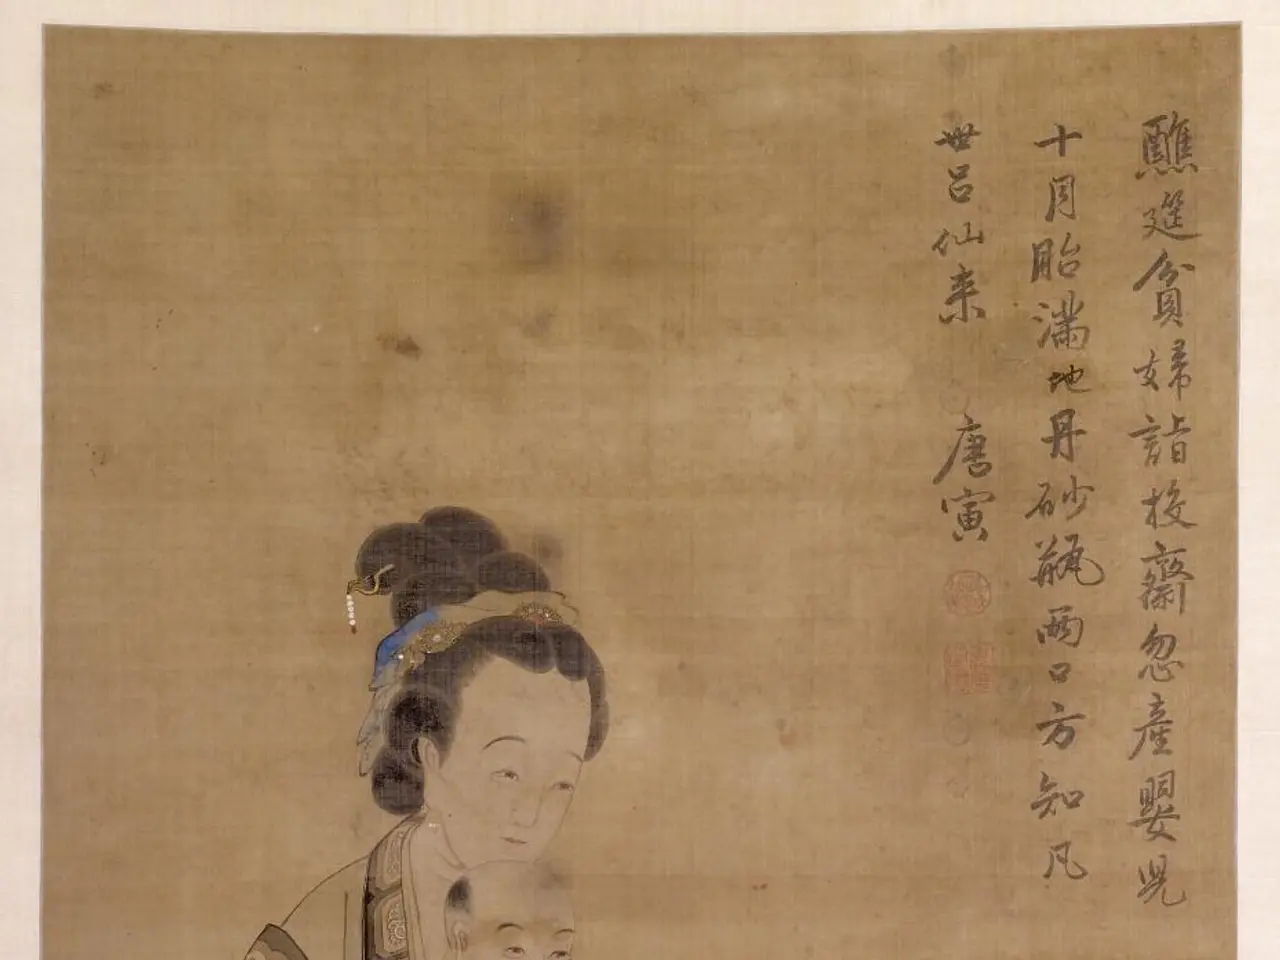 醮筵貧婦詣投齋忽產嬰兒
十月胎滿地丹砂瓶兩口方知凡
世呂仙来
唐寅